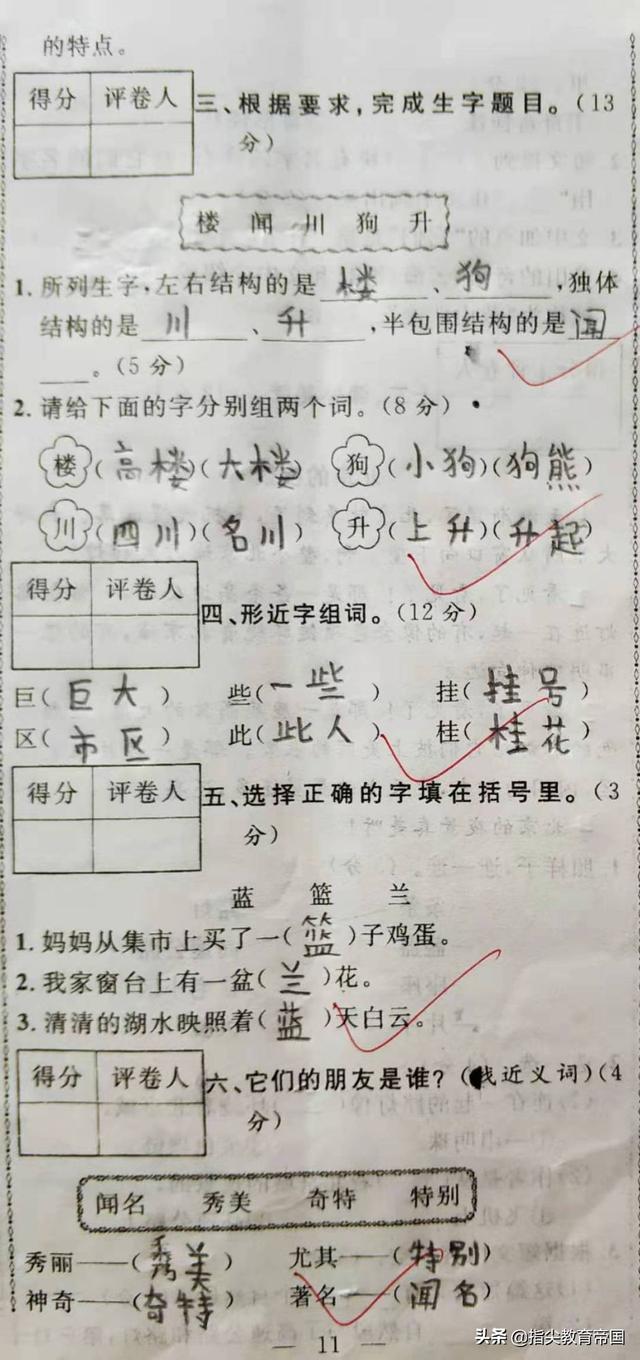 的特点。
得分 评卷人
三、根据要求,完成生字题目。(13
分)
楼 闻 川 狗 升
1.所列生字,左右结构的是 楼 、 狗 ,独体
结构的是 川 、 升 ,半包围结构的是 闻
。(5分)
2.请给下面的字分别组两个词。(8分)
楼(高楼)(大楼) 狗(小狗)(狗熊)
川(四川)(名川) 升(上升)(升起)
得分 评卷人
四、形近字组词。(12分)
巨(巨大) 些(一些) 挂(挂号)
区(市区) 此(此人) 桂(桂花)
得分 评卷人
五、选择正确的字填在括号里。(3
分)
蓝 篮 兰
1.妈妈从集市上买了一(篮)子鸡蛋。
2.我家窗台上有一盆(兰)花。
3.清清的湖水映照着(蓝)天白云。
得分 评卷人
六、它们的朋友是谁?(找近义词)(4
分)
闻名 秀美 奇特 特别
秀丽——(秀美) 尤其——(特别)
神奇——(奇特) 著名——(闻名)
— 11 —
头条 @指尖教育帝国